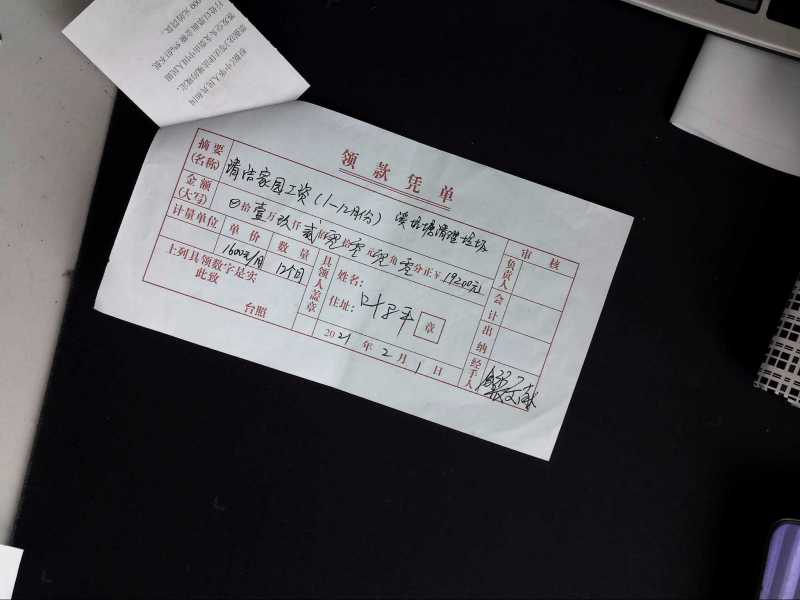 领款凭单
摘要(名称) 清洁家园工资(1-12月份) 清理垃圾
金额(大写) 拾壹万玖仟贰佰零拾零元零角零分正¥19200元
计量单位 单价 数量
1600元/月 12个月
上列具领数字是实
此致
台照
具领人盖章
姓名:
住址:
叶子平
章
2021年2月1日
审核
负责人
会计
出纳
经手人